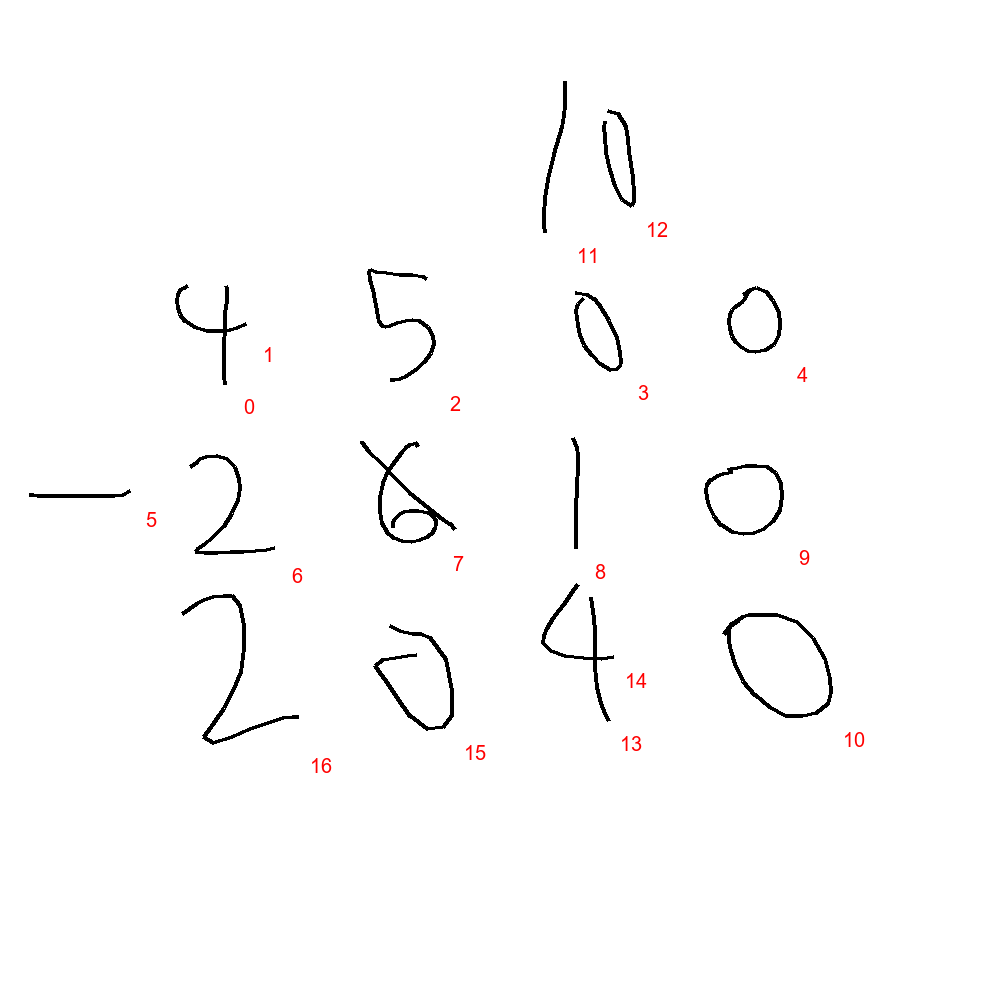 10
11 12
4 5 0 0
0 1 2 3 4
- 2 6 1 0
5 6 7 8 9
2 0 4 0
16 15 13 14 10